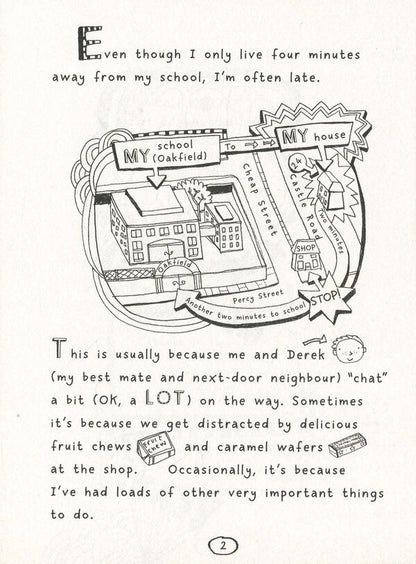 Even though I only live four minutes
away from my school, I'm often late.
MY school
(Oakfield)
To
MY house
24
Cheap Street
Castle Road
two minutes
SHOP
Oakfield
Percy Street
Another two minutes to school
STOP!
This is usually because me and Derek
(my best mate and next-door neighbour) "chat"
a bit (OK, a LOT) on the way. Sometimes
it's because we get distracted by delicious
fruit chews FRUIT CHEW and caramel wafers
at the shop. Occasionally, it's because
I've had loads of other very important things
to do.
2